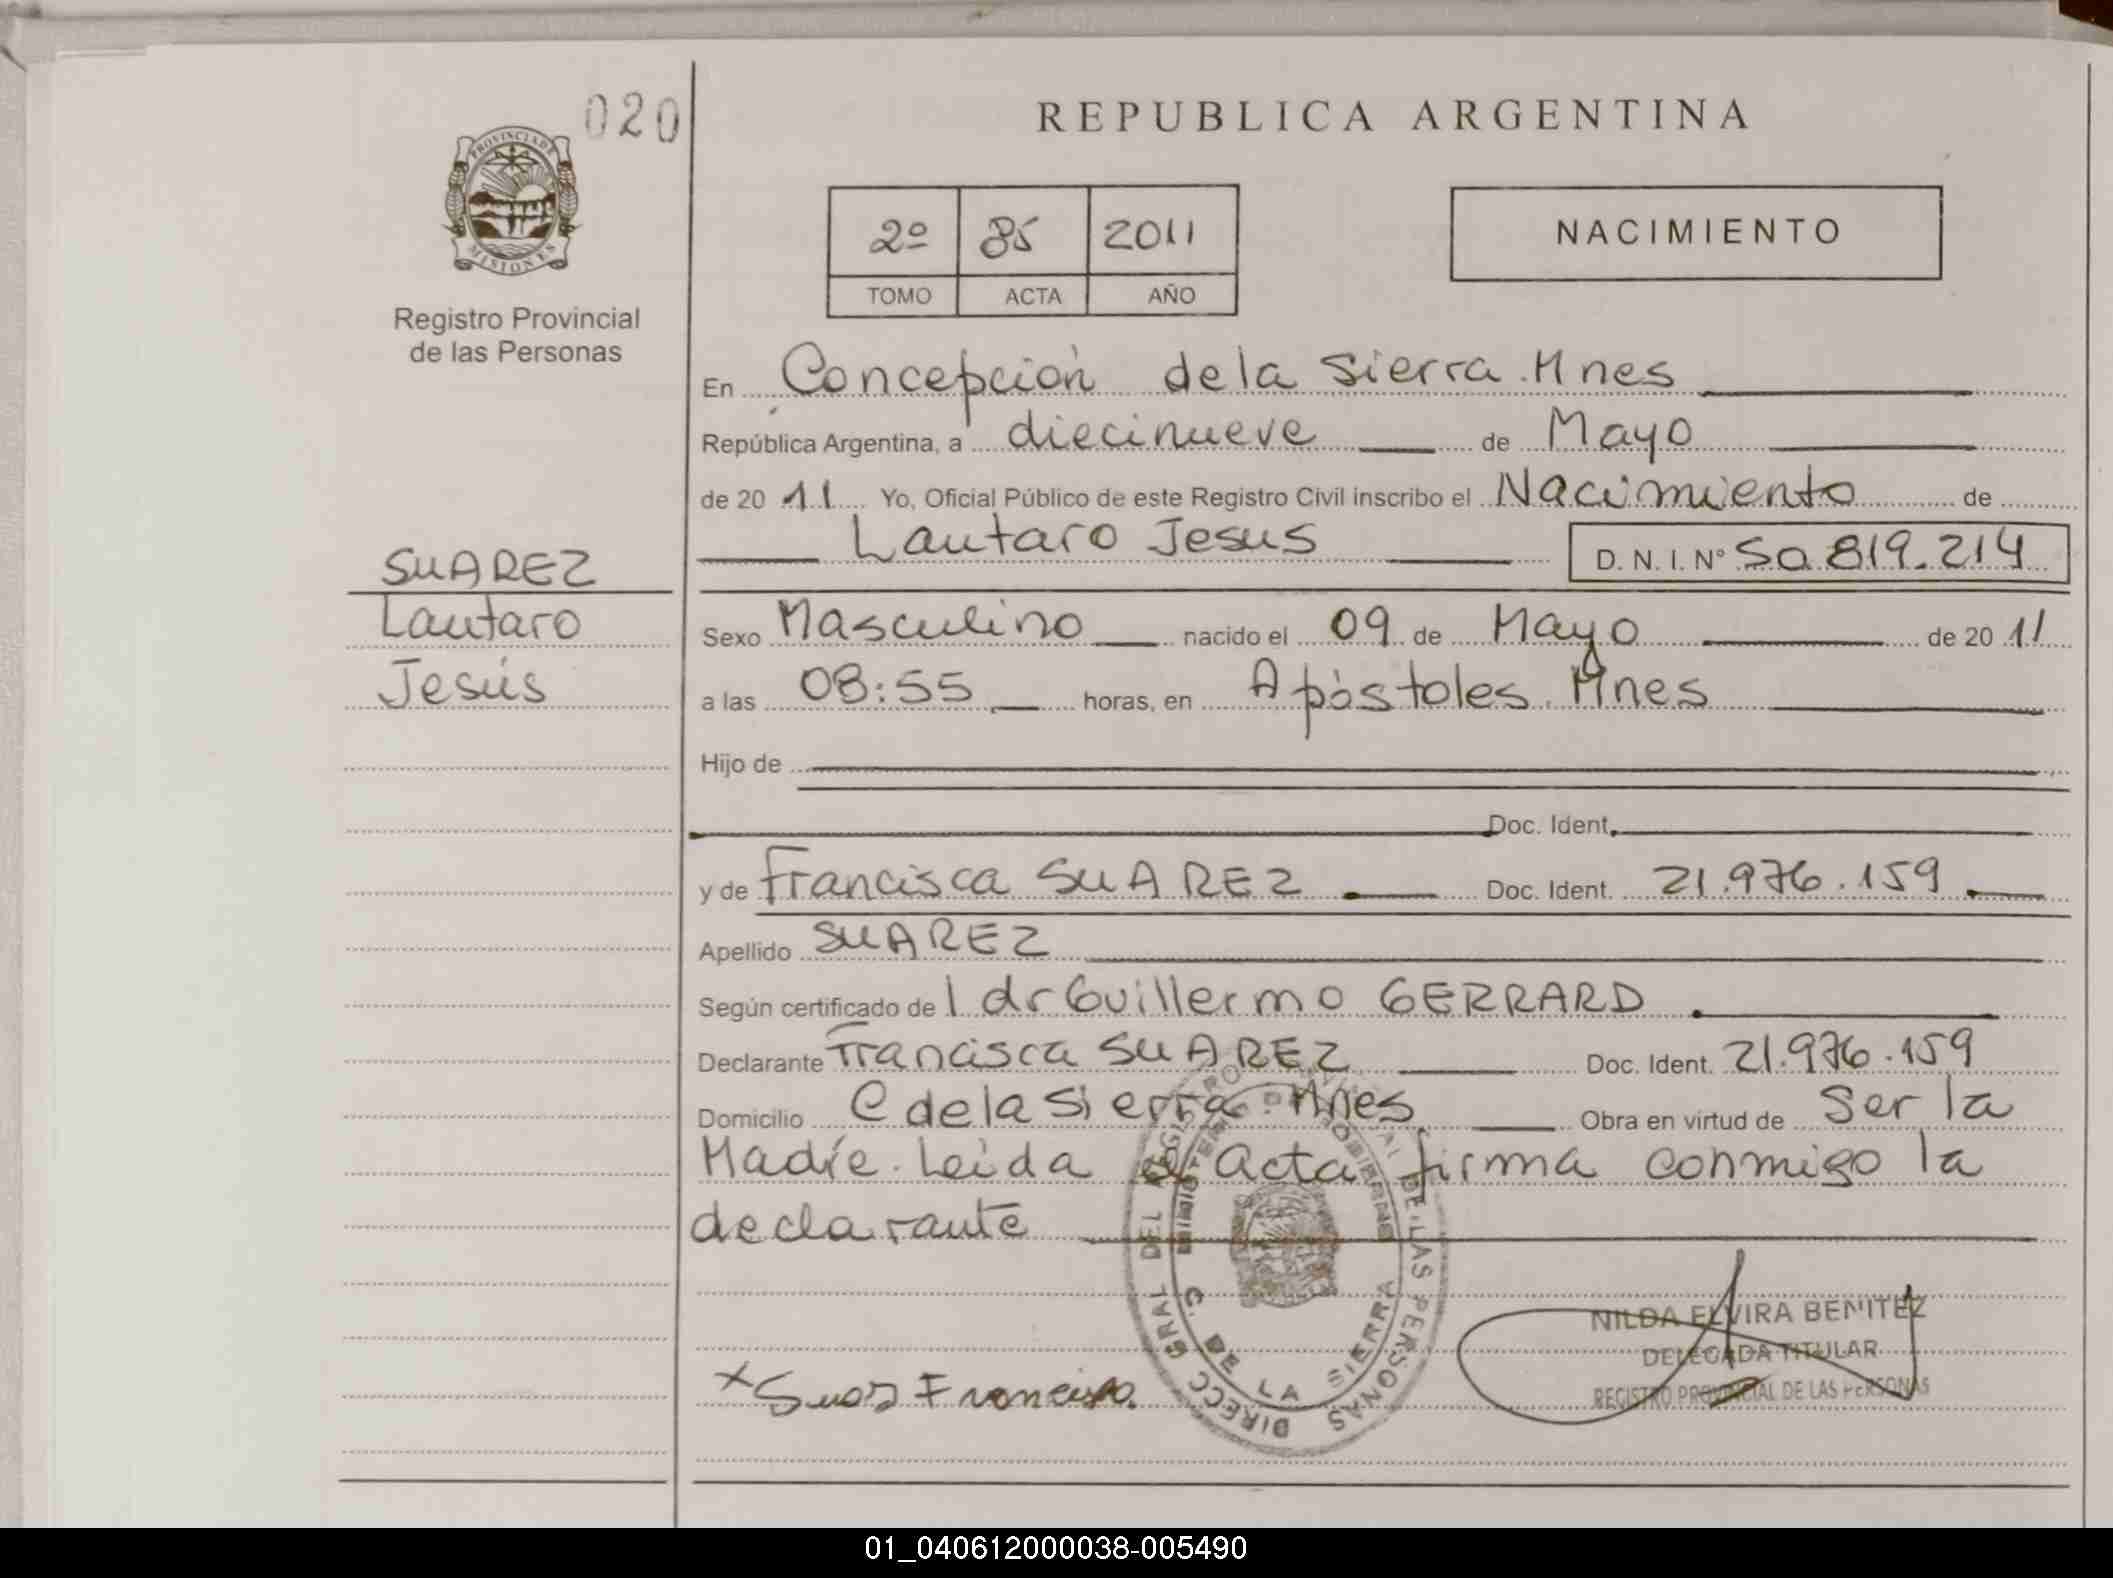 020
PROVINCIA DE
MISIONES
Registro Provincial
de las Personas
SUAREZ
Lautaro
Jesús
REPUBLICA ARGENTINA
2º 85 2011
TOMO ACTA AÑO
NACIMIENTO
En Concepción de la Sierra. Mnes
República Argentina, a diecinueve de Mayo
de 20 11 Yo, Oficial Público de este Registro Civil inscribo el Nacimiento de
Lautaro Jesus D. N. I. Nº 50.819.214
Sexo Masculino nacido el 09 de Mayo de 20 11
a las 08:55 horas, en Apóstoles. Mnes
Hijo de
Doc. Ident.
y de Francisca SUAREZ Doc. Ident. 21.976.159
Apellido SUAREZ
Según certificado de l dr Guillermo GERRARD
Declarante Francisca SUAREZ Doc. Ident. 21.976.159
Domicilio C de la Sierra. Mnes. Obra en virtud de Ser la
Madre. Leida el Acta firma conmigo la
declarante
DIRECC GRAL DEL REGISTRO PROVINCIAL DE LAS PERSONAS
C. DE LA SIERRA
NILDA ELVIRA BENITEZ
DELEGADA TITULAR
REGISTRO PROVINCIAL DE LAS PERSONAS
x Francisca
01_040612000038-005490